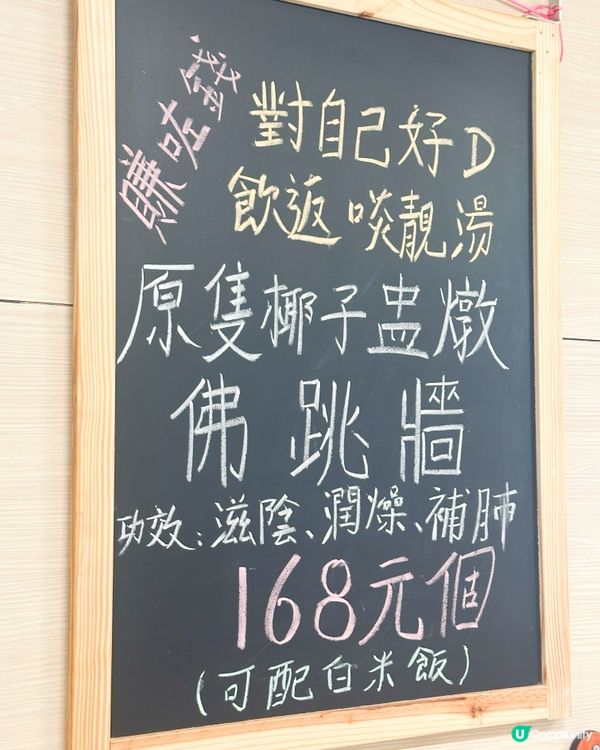 賺咗發
對自己好D
飲返啖靚湯
原隻椰子盅燉
佛跳牆
功效:滋陰、潤燥、補肺
168元個
(可配白米飯)
U Community